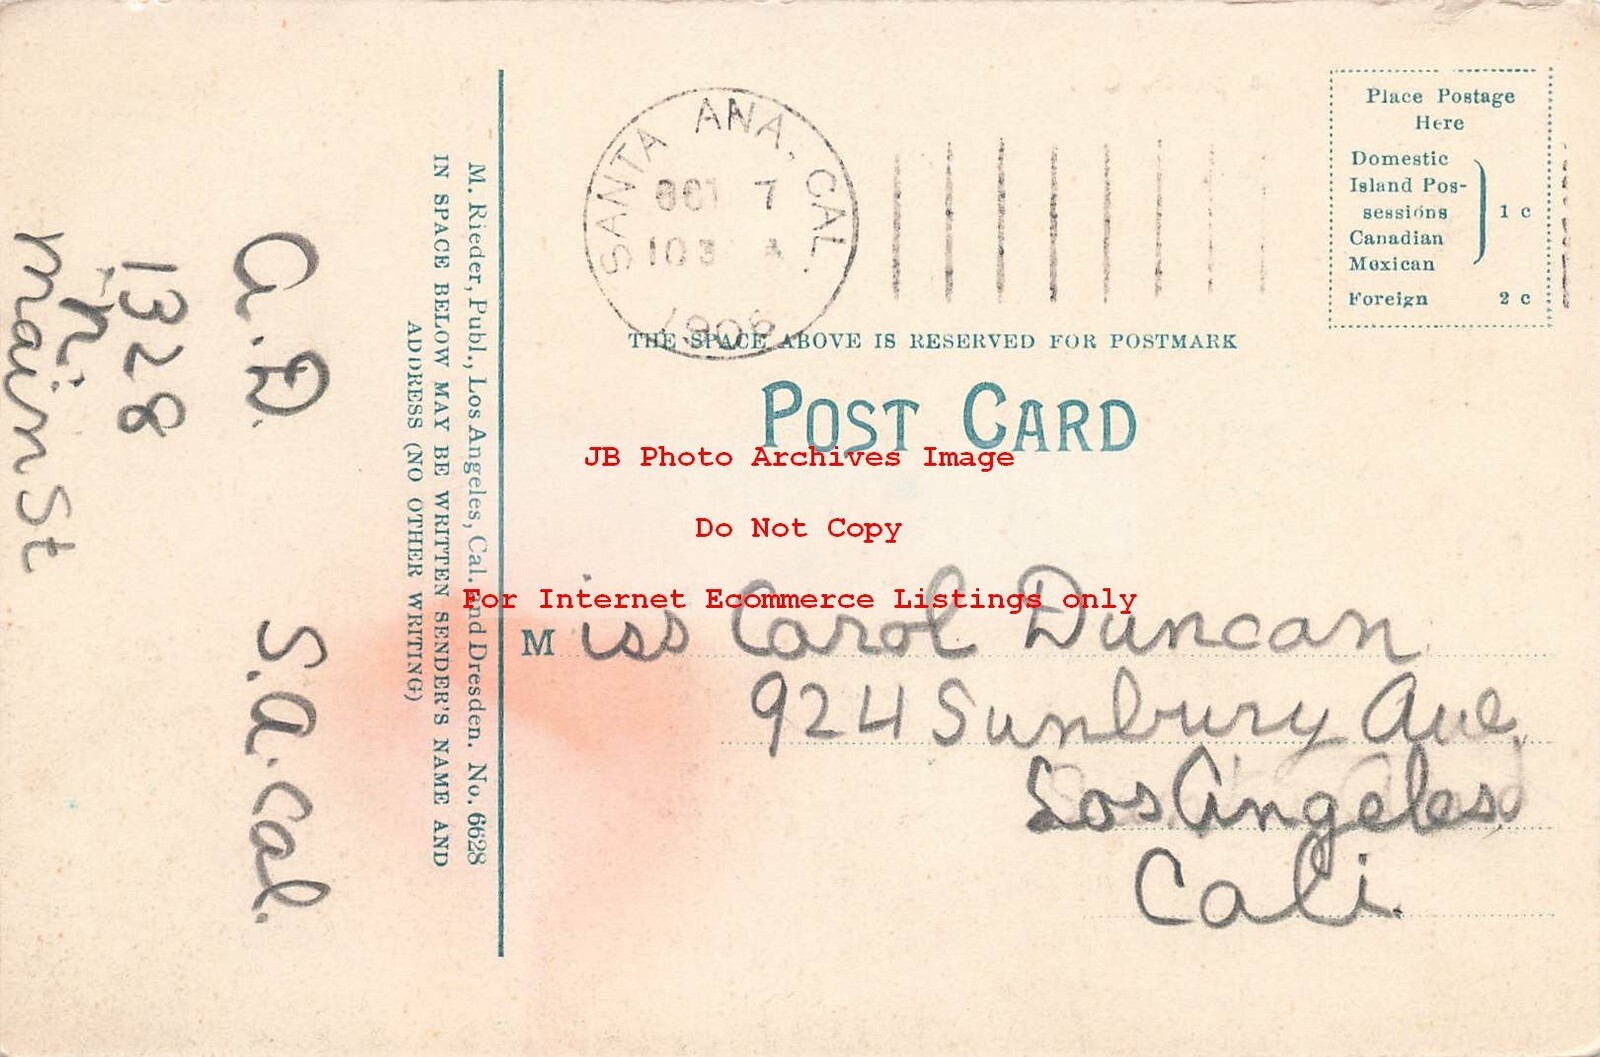 SANTA ANA, CAL.
OCT 7
1906
Place Postage
Here
Domestic
Island Pos-
sessions
Canadian
Mexican
1 c
Foreign 2 c
THE SPACE ABOVE IS RESERVED FOR POSTMARK
POST CARD
JB Photo Archives Image
Do Not Copy
For Internet Ecommerce Listings only
Miss Carol Duncan
924 Sunbury Ave.
Los Angeles
Cali.
M. Rieder, Publ., Los Angeles, Cal. and Dresden. No. 6628
IN SPACE BELOW MAY BE WRITTEN SENDER'S NAME AND
ADDRESS (NO OTHER WRITING)
a. D. S.a. Cal.
1328
n.
main St